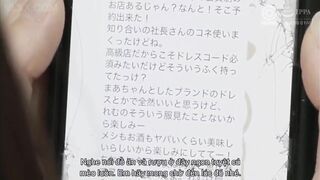 お店あるじゃん？なんと！そこ予
約出来た！
知り合いの社長さんのコネ使いま
くったけどね。
高級店だからこそドレスコード必
須みたいだけどそういうふく持っ
てたっけ？
まあちゃんとしたブランドのドレ
スとかで全然いいと思うけど、
れむのそういう服見たことないか
ら楽しみー
メシもお酒もヤバいくらい美味し
いらしいから楽しみにしててー！
Nghe nói đồ ăn và rượu ở đây ngon tuyệt cú
mèo luôn. Em hãy mong chờ đến lúc đó nhé.